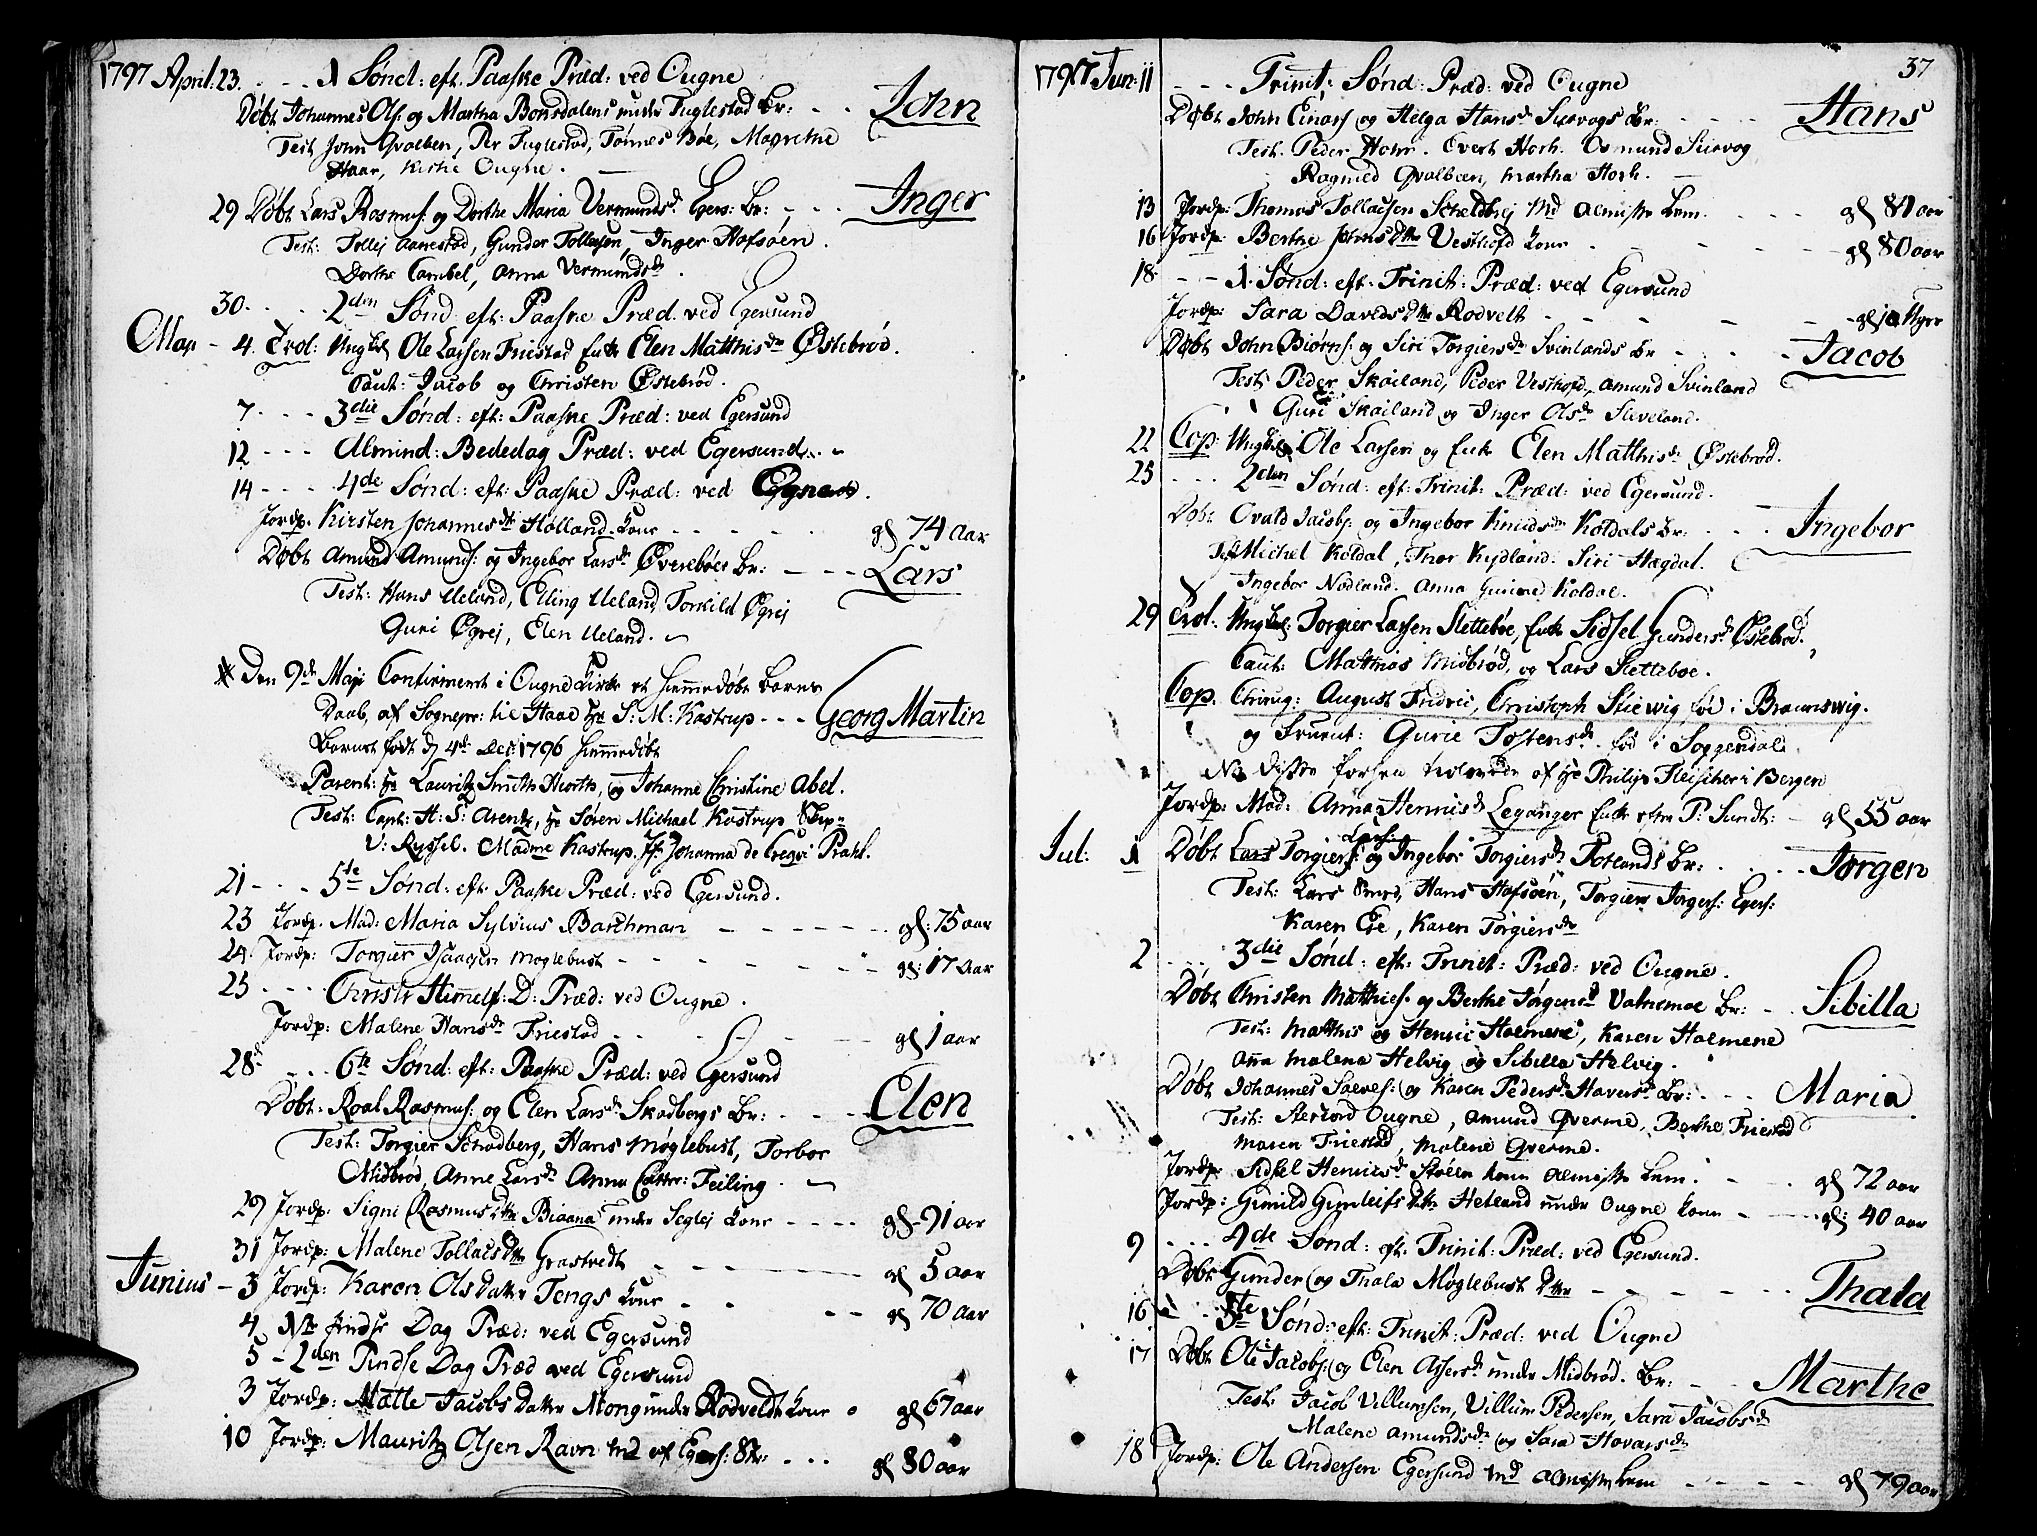 1797 April: 23. - - - 1 Sønd: eft. Paaske Præd: ved Ougne
Døbt Johannes Ols: og Martha Bonsdalens under Fuglestad Br: - - John
Test John Qvalben, Per Fuglestad, Tønnes Bøe, Magrethe
Haar, Kistie Ougne.
29 Døbt Lars Rasmus: og Dorthe Maria Vermunds dr Egers: Br: - - - Inger
Test: Tollej Aanestad, Gunder Tollefsen, Inger Hofsøen.
Dorthe Cambel, Anna Vermunds dr.
30. - - - 2den Sønd: eft: Paaske Præd: ved Egersund
Maj - 4. Trol: Ungkl Ole Larsen Friestad Enke Elen Matthis dr Østebrød.
Caut: Jacob og Christen Østebrød.
7 - - - 3die Sønd: eft: Paaske Præd: ved Egersund
12 - - - Almind: Bededag Præd: ved Egersund.
14 - - - 4de Sønd: eft: Paaske Præd: ved
Jordp: Kirsten Johannes dr Holland Kone - - - - - gl 74 aar
Døbt Amund Amunds: og Ingebor Lars dr Øverebøes Br: - - - Lars
Test: Hans Ueland, Elling Ueland, Torkild Øgrej
Guri Øgrej, Elen Ueland.
# Den 9de Maji Confirmert i Ougne Kirke et hiemmedøbt Barns
Daab, af Sognepr: til Haae Hr S: M: Kastrup - - - Georg Martin
Barnet født d 4de Dec: 1796 hiemmedøbt
Parent: Hr Lauritz Smith Hiorth, og Johanne Christine Abel.
Test: Capt: H: S: Arentz, Hr Søren Michael Kastrup
V: Ryssel. Madme Kastrup. Jfr Johanna de Creqvi Prahl.
21 - - - 5te Sønd: eft Paaske Præd: ved Egersund.
23 Jordp. Mad: Maria Sylvius Barchman - - - - - gl: 75 aar
24. Jordp: Torgier Isaacsen Møglebust - - - - - gl: 17 aar
25 - - - Christi Himelf: D: Præd: ved Ougne.
Jordp: Malene Hans dr Friestad - - - - gl 1 aar
28. - - - 6te Sønd: eft: Paaske Præd: ved Egersund
Døbt: Roal Rasmus: og Elen Lars dr Skadbergs Br: - - - Elen
Test: Torgier Schadberg, Hans Møglebust, Torbor
Midbrød, Anne Lars dr Anna Cathr: Feiling.
29 Jordp: Signi Rasmus dtr Biaana under Seglej Kone - - - - gl - 91 aar
31 Jordp: Malene Tollafs dtr Grastvedt - - - gl 5 aar
Junius - 3 Jordp: Karen Ols datr Tengs Kone - - - gl 70 aar
4 1te Pindse Dag Præd: ved Egersund
5 - 2den Pindse Dag Præd ved Egersund
3 Jordp: Mallè Jacobs Datr Mong under Rødveldt Kone gl 67 aar
10 Jordp: Mauritz Olsen Ravn Md af Egers: - - - gl 80 aar
37
1797 Jun: 11 - - - Trinit: Sønd: Præd: ved Ougne
Døbt John Einars og Helga Hans dr Sirevogs Br: - - - - Hans
Test: Peder Hohr. Evert Horh. Osmund Sirevog
Ragnild Qvalbeen, Martha Horh.
13 Jordp: Thomas Tollacsen Scheldbrej Md Almisse Lem. - - - gl 81 aar
16 Jordp: Berthe Johns dtr Vesthofd Kone - - - - gl 80 aar
18 - - - 1. Sønd: eft: Trinit: Præd: ved Egersund
Jordp: Sara Davids dtr Rodvelt - - - - gl
Døbt John Biørns: og Siri Torgiers dr Svinlands Br - - - Jacob
Test: Peder Skailand, Peder Vesthofd, Amund Svinland
Guri Skailand og Inger Ols dr Sleveland.
22 Cop: Ungkl Ole Larsen og Enke Elen Matthis dr Østebrød.
25 - - - 2den Sønd: eft: Trinit: Præd: ved Egersund.
Døbt Ovald Jacobs: og Ingebor Knuds dr Koldals Br: - - - Ingebor
Test Michel Koldal, Thor Kydland. Siri Hægdal.
Ingebor Nodland. Anna Gurine Koldal.
29 Trol: Ungkl: Torgier Larsen Slettebøe, Enke Sidsel Gunders dr Østebrød.
Caut: Matthias Midbrød, og Lars Slettebøe.
Cop. Chirug: August Fridric, Christoph Stiewig fød i Braunswig.
og Fruent: Gurie Tostens dr fød i Soggendal.
NB Disse Persen
af Hr Philip Fleischer i Bergen
Jordp: Mad: Anna Hennis dr Leganger Enke efter P: Sundt: - gl 55 aar
Jul: 1 Døbt Lars Torgiers: Larsen og Ingebor Torgiers dr Rotlands Br: - - - Jørgen
Test: Lars Smed, Hans Hofsøen, Torgiers Jørgens: Egers:
Karen Eie, Karen Torgiers dr
2 - - - 3die Sønd: eft: Trinit: Præd: ved Ougne.
Døbt Christen Matthies: og Berthe Jørgens dr Vatnemoe Br: - Sibilla
Test: Matthis og Henric Holmene, Karen Holmene
Ana Malena Helvig og Sibilla Helvig.
Døbt Johannes Salves: og Karen Peders dr Havers Br: - - - Maria
Test: Ougne, Amund Qverme, Berthe Friestad
Maren Friestad, Malene Qverme.
Jordp: Sidsel Henrics dr Stølen Kone Almisse Lem. - - - gl 72 aar
Jordp: Gunild Gunleifs dtr Hetland under Ougne Kone - - - gl: 40 aar
9 - - - 4de Sønd: eft. Trinit: Præd: ved Egersund.
Døbt Gunder og Thala Møglebust dtr - - - - - Thala
16 - - 5te Sønd: eft: Trinit: Præd: ved Ougne
17 Døbt Ole Jacobs: og Elen Assers dr under Midbrød. Br: - - Marthe
Test: Jacob Villumsen, Villum Pedersen, Sara Jacobs dr
Malene Amunds dr og Sara Hovars dr
18 Jordp: Ole Andersen Egersund Md Almisse Lem - - - - gl 79 aar